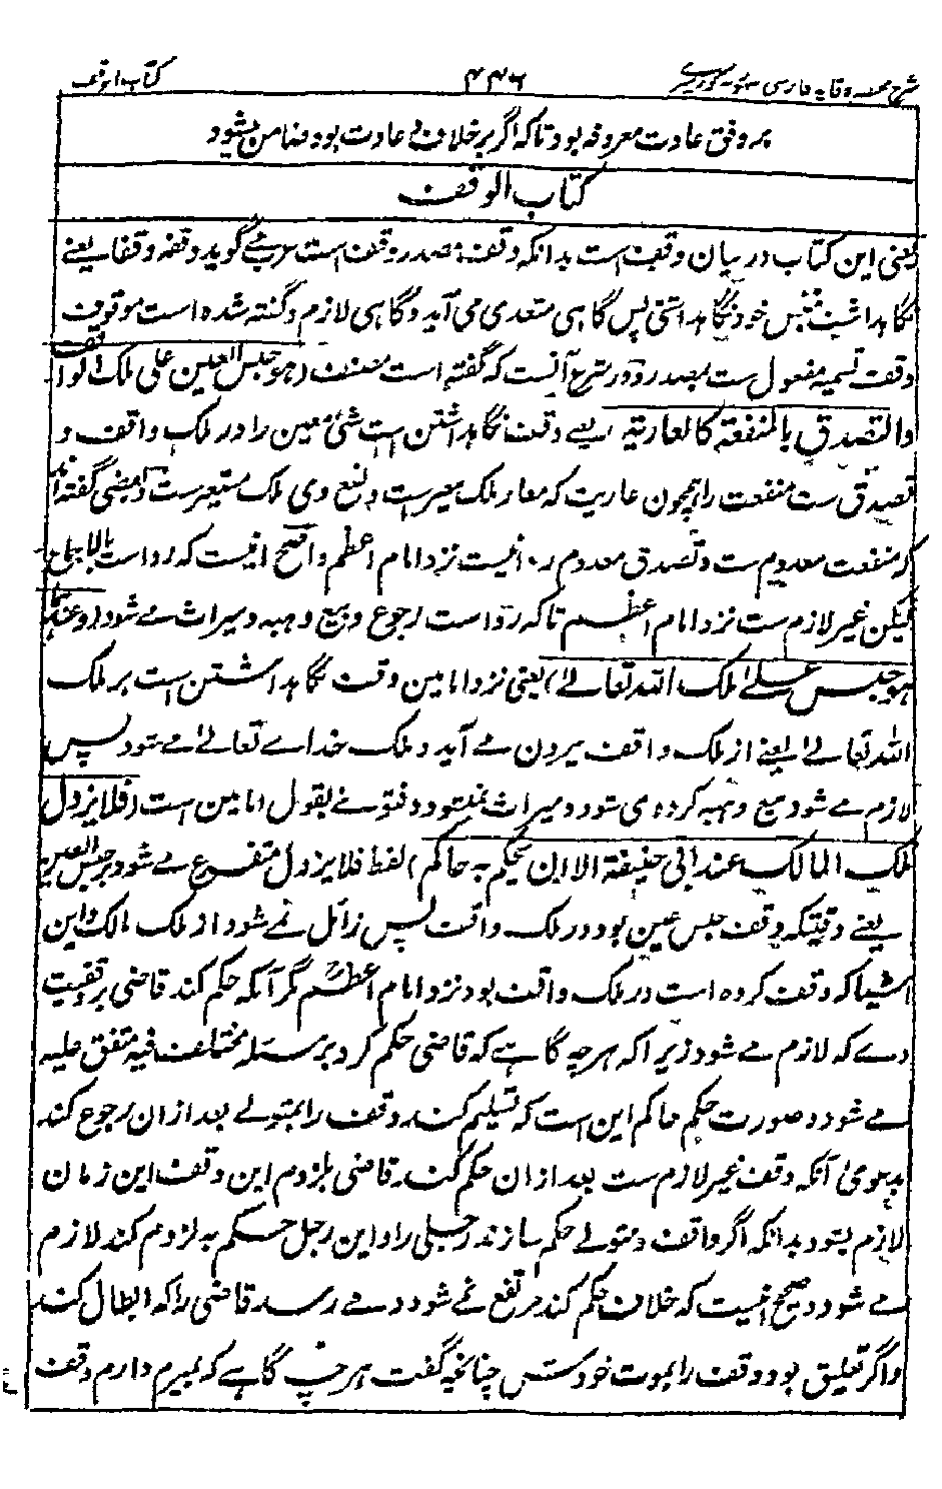 کتاب الوقف ۴۴۶ شرح وقایه فارسی
بر وفق عادت معروفه بود تا که اگر بر خلاف عادت بود ضامن بشود
کتاب الوقف
یعنی این کتاب در بیان وقف است بدانکه وقف مصدر وقف است عربے گوید وقفه وقفا یعنے
نگاهداشت پس خود نگاهداشتی پس گاهی متعدی می آید و گاهی لازم و گفته شده است موقوف
وقف تسمیه مفعول ست بمصدر و در شرع آنست که گفته است مصنف (هو حبس العین علی ملک الواقف
والتصدق بالمنفعة کالعاریة) یعنے وقف نگاهداشتن است شیٔ معین را در ملک واقف و
تصدق ست منفعت را همچون عاریت که معار ملک معیر ست و نفع وی ملک مستعیر ست و بعضی گفته اند
که منفعت معدوم ست و تصدق معدوم روا نیست نزد امام اعظم و اصح اینست که روا ست بالاجماع
لیکن غیر لازم ست نزد امام اعظم تا که روا است رجوع و بیع و هبه و میراث مے شود (و عندهما
هو حبس علے ملک الله تعالے) یعنی نزد امامین وقف نگاهداشتن است بر ملک
الله تعالے یعنے از ملک واقف بیرون مے آید و ملک خداے تعالے مے شود پس
لازم مے شود بیع و هبه کرده می شود و میراث نشود و فتوے بقول امامین است (فلا یزول
ملک المالک عند ابی حنیفة الا ان یحکم به حاکم) لفظ فلا یزول متفرع مے شود بر حبس العین
یعنے وقتیکه وقف حبس عین بود در ملک واقف پس زائل نمے شود از ملک مالک و این
اشیا که وقف کرده است در ملک واقف بود نزد امام اعظم مگر آنکه حکم کند قاضی بر وقفیت
وے که لازم مے شود زیرا که هر چه گاہے که قاضی حکم کرد بر مسئله مختلف فیه متفق علیه
مے شود و صورت حکم حاکم این است که تسلیم کند وقف را بمتولے بعد از ان رجوع کند
بدعویٰ آنکه وقف غیر لازم ست بعد از ان حکم کند قاضی بلزوم این وقف این زمان
لازم بشود بدانکه اگر واقف و متولے حکم سازند رجلی را و این رجل حکم به لزوم کند لازم
مے شود و صحیح اینست که خلاف حکم کند مرتفع نمے شود و مے رسد قاضی را که ابطال کند
و اگر تعلیق بود وقف را بموت خودش چنانچه گفت هر چه گاہے که بمیرم دارم وقف